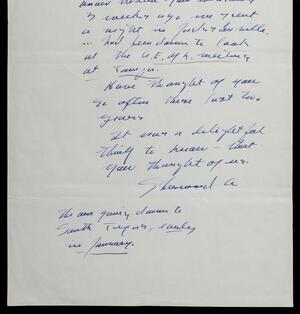 3 weeks ago we spent
a night in Jacksonville
... had been down to look
at the U.S. of A. meeting
at Tampa.
Have thought of you
so often these last two
years
It was a delightful
thing to know - that
you thought of us.
We are going down to
South Texas, early
in January.